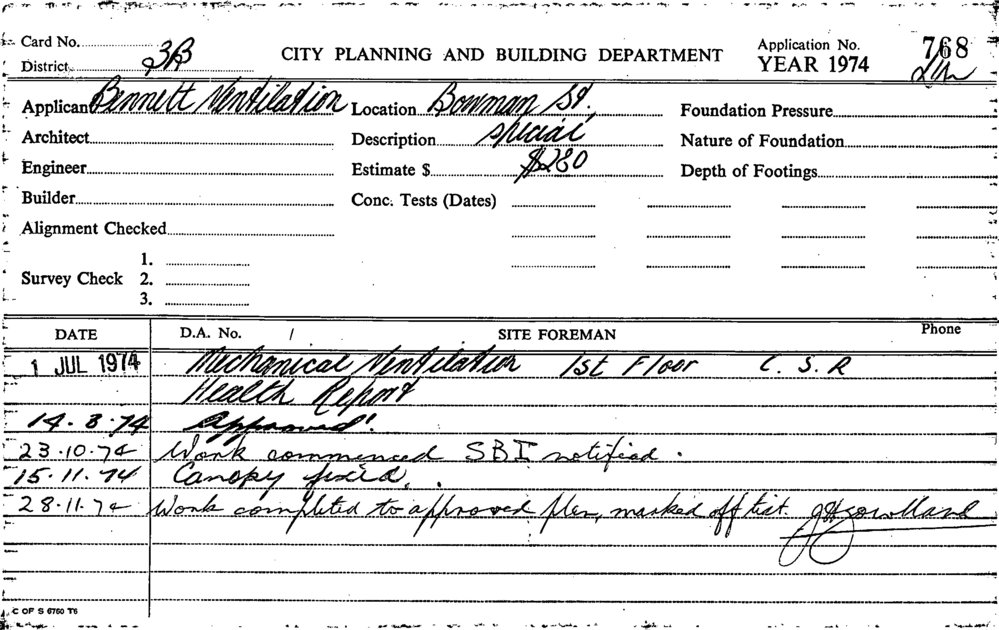 Card No. CITY PLANNING AND BUILDING DEPARTMENT Application No. 768
District 3B YEAR 1974
Applicant Bennett Ventilation Location Bowman St. Foundation Pressure
Architect Description special Nature of Foundation
Engineer Estimate $ $280 Depth of Footings
Builder Conc. Tests (Dates)
Alignment Checked
1.
Survey Check 2.
3.
DATE D.A. No. / SITE FOREMAN Phone
1 JUL 1974 Mechanical Ventilation 1st Floor C.S.R
Health Report
14.8.74 Approved!
23.10.74 Work commenced SBI notified.
15.11.74 Canopy fixed.
28.11.74 Work completed to approved plan, marked off list.
C OF S 6750 T6